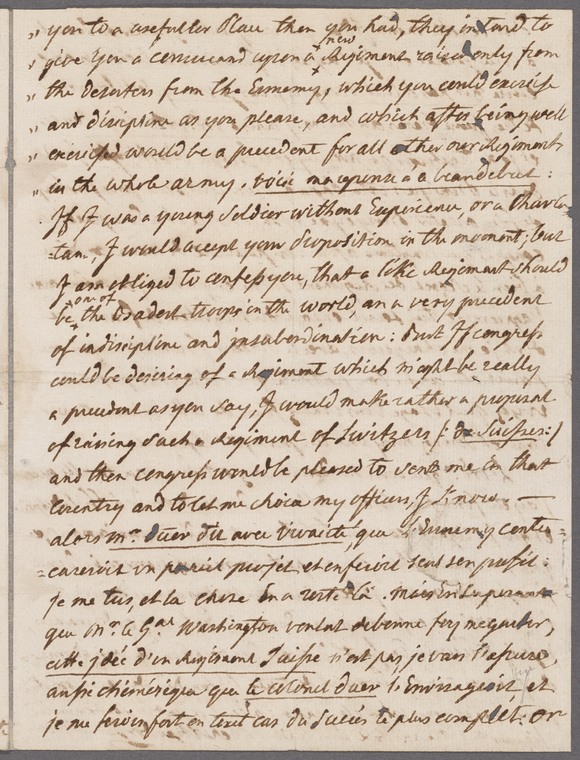 „ you to a usefuller Place then you had, they intend to
„ give you a command upon a new Regiment raised only from
„ the deserters from the Ennemy, which you could exercise
„ and discipline as you please, and which after being well
„ exercised would be a precedent for all other our Regiments
„ in the whole army. voici ma reponse a a beau debut :
If I was a young Soldier without Experience, or a Charla-
-tan, I would accept your disposition in the moment; but
I am obliged to confess you, that a like Regiment should
be one of the badest troops in the world, an a very precedent
of indiscipline and insubordination : But If congress
could be desiring of a Regiment which might be really
a precedent as you say, I would make rather a proposal
of raising such a Regiment of Switzers /: de Suisses :/
and then congress would be pleased to send me in that
Country and to let me choice my officers, I know —
alors Mr. Duer dit avec vivacité, que l'Ennemy contre
=careroit un pareil projet et en feroit seul son profit :
je me tus, et la chose en a resté là. mais en supposant
que Mr. le Gal Washington voulut de bonne foy me garder,
cette jdée d'un Regiment Suisse n'est pas, je vous l'assure,
aussi chimérique que le colonel duer l'envisageoit, et
je me ferois fort en tout cas du Succés le plus complet. or